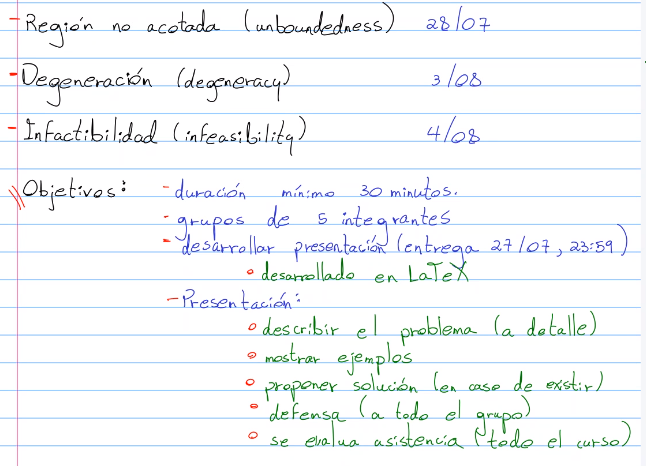 - Región no acotada (unboundedness) 28/07
- Degeneración (degeneracy) 3/08
- Infactibilidad (infeasibility) 4/08
Objetivos: - duración mínimo 30 minutos.
- grupos de 5 integrantes
- desarrollar presentación (entrega 27/07, 23:59)
• desarrollado en LaTeX
- Presentación:
• describir el problema (a detalle)
• mostrar ejemplos
• proponer solución (en caso de existir)
• defensa (a todo el grupo)
• se evalua asistencia (todo el curso)